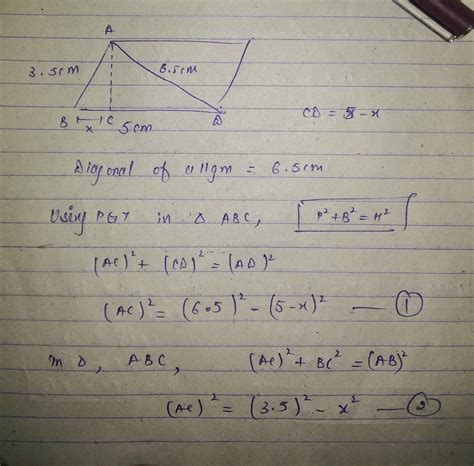 A
3.5cm
6.5cm
B
x
C
5cm
D
CD = 5-x
Diagonal of a ||gm = 6.5cm
Using PGT in Δ ABC, P²+B²=H²
(AC)² + (CD)² = (AD)²
(AC)² = (6.5)² - (5-x)² — ①
in Δ, ABC, (AC)² + BC² = (AB)²
(AC)² = (3.5)² - x² — ②